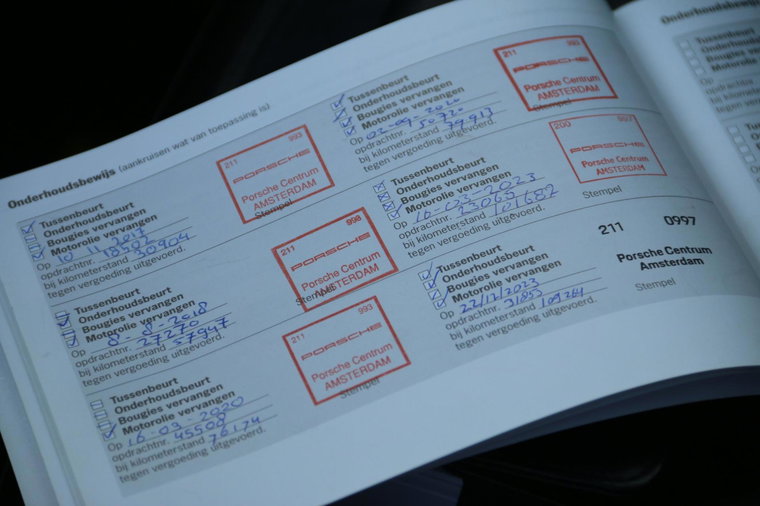 Onderhoudsbewijs (aankruisen wat van toepassing is)
Tussenbeurt
Onderhoudsbeurt
Bougies vervangen
Motorolie vervangen
Op 10-11-2017
opdrachtnr. 18502
bij kilometerstand 30904
tegen vergoeding uitgevoerd.
211 993
PORSCHE
Porsche Centrum
AMSTERDAM
Stempel
Tussenbeurt
Onderhoudsbeurt
Bougies vervangen
Motorolie vervangen
Op 8-8-2018
opdrachtnr. 27270
bij kilometerstand 57947
tegen vergoeding uitgevoerd.
211 998
PORSCHE
Porsche Centrum
AMSTERDAM
Stempel
Tussenbeurt
Onderhoudsbeurt
Bougies vervangen
Motorolie vervangen
Op 16-09-2020
opdrachtnr. 45508
bij kilometerstand 76174
tegen vergoeding uitgevoerd.
211 993
PORSCHE
Porsche Centrum
AMSTERDAM
Stempel
Tussenbeurt
Onderhoudsbeurt
Bougies vervangen
Motorolie vervangen
Op 02-09-2020
opdrachtnr. 50720
bij kilometerstand 79917
tegen vergoeding uitgevoerd.
211 993
PORSCHE
Porsche Centrum
AMSTERDAM
Stempel
Tussenbeurt
Onderhoudsbeurt
Bougies vervangen
Motorolie vervangen
Op 16-03-2023
opdrachtnr. 23069
bij kilometerstand 101682
tegen vergoeding uitgevoerd.
200 997
PORSCHE
Porsche Centrum
AMSTERDAM
Stempel
Tussenbeurt
Onderhoudsbeurt
Bougies vervangen
Motorolie vervangen
Op 22/12/2023
opdrachtnr. 31855
bij kilometerstand 109264
tegen vergoeding uitgevoerd.
211 0997
Porsche Centrum
Amsterdam
Stempel
Onderhoudsbewijs
Tussenbeurt
Onderhoudsbeurt